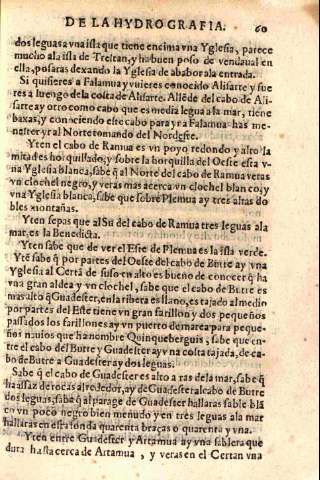 DE LA HYDROGRAFIA. 60
dos leguas a vna isla que tiene encima vna Yglesia, parece
mucho ala isla de Trestan, y ha buen poso de vendaual en
ella, posaras dexando la Yglesia de ababor ala entrada.
Si quisieres a Falamua y vuieres conocido Alisarte y fue
res a luengo de la costa de Alisarte. Allēde del cabo de Ali-
sarte ay otro como cabo que es media legua ala mar, tiene
baxas, y conociendo este cabo para yr a Falamua has me-
nester yr al Norte tomando del Nordeste.
Yten el cabo de Ramua es vn poyo redondo y alto la
mitad es horquillado, y sobre la horquilla del Oeste esta v
na Yglesia blanca, sabe q̃ al Norte del cabo de Ramua veras
vn clochel negro, y veras mas acerca vn clochel blanco, y
vna Yglesia blanca, sabe que sobre Plemua ay tres altas do
bles mōtañas.
Yten sepas que al Su del cabo de Ramua tres leguas ala
mar, es la Benedista.
Yten sabe que de ver el Este de Plemua es la isla verde.
Ytē sabe q̃ por partes del Oeste del cabo de Butre ay vna
Yglesia al Certā de suso en alto es bueno de conocer q̃ ha
vna gran aldea y vn clochel, sabe que el cabo de Butre es
mas alto q̃ Guadester, en la ribera es llano, es tajado al medio
por partes del Este tiene vn gran farillon y dos pequeños
passados los farillones ay vn puerto de marea para peque-
ños nauios que ha nombre Quinqueberguis, sabe que en-
tre el cabo del Butre y Guadester ay vna costa tajada, de ca-
bo de Butre a Guadester ay dos leguas.
Sabe q̃ el cabo de Guadester es alto a ras de la mar, sabe q̃
ha assaz de rocas al rededor, ay de Guadester al cabo de Butre
dos leguas, sabe q̃ al parage de Guadester hallaras sable blā
co y vn poco negro bien menudo y en tres leguas ala mar
hallaras en esta sonda quarenta braças o quarenta y vna.
Yten entre Guadester y Artamua ay vna sablera que
dura hasta cerca de Artamua, y veras en el Certan vna